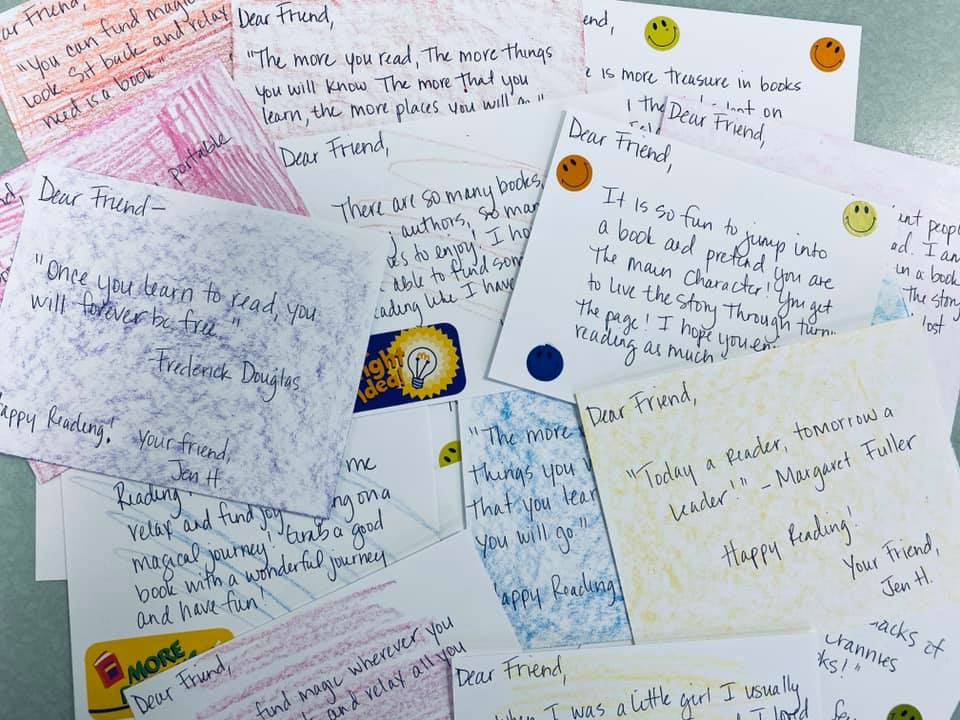 Dear Friend,
"You can find magic
look. Sit back and relax
need is a book"
Dear Friend,
"The more you read, The more things
you will know. The more that you
learn, the more places you will go."
end,
is more treasure in books
on
portable
Dear Friend,
There are so many books,
authors, so man
es to enjoy! I ho
able to find som
eading like I have
ight
Idea!
Dear Friend,
It is so fun to jump into
a book and pretend you are
The main character! You get
to live the story Through turn
the page! I hope you en
reading as much
Dear Friend,
peop
ad. I am
in a book
The story
lost
Dear Friend—
"Once you learn to read, you
will forever be free."
Frederick Douglas
Happy Reading!
Your friend,
Jen H
me
Reading
relax and find joy
ng on a
magical journey! Grab a good
book with a wonderful journey
and have fun!
MORE
"The more
Things you
that you lear
you will go."
Happy Reading
Dear Friend,
"Today a Reader, tomorrow a
Leader!" – Margaret Fuller
Happy Reading!
Your Friend,
Jen H.
Dear Friend,
find magic wherever you
and relax all you
Dear Friend,
When I was a little girl I usually
I loved
acks of
crannies
ks!"